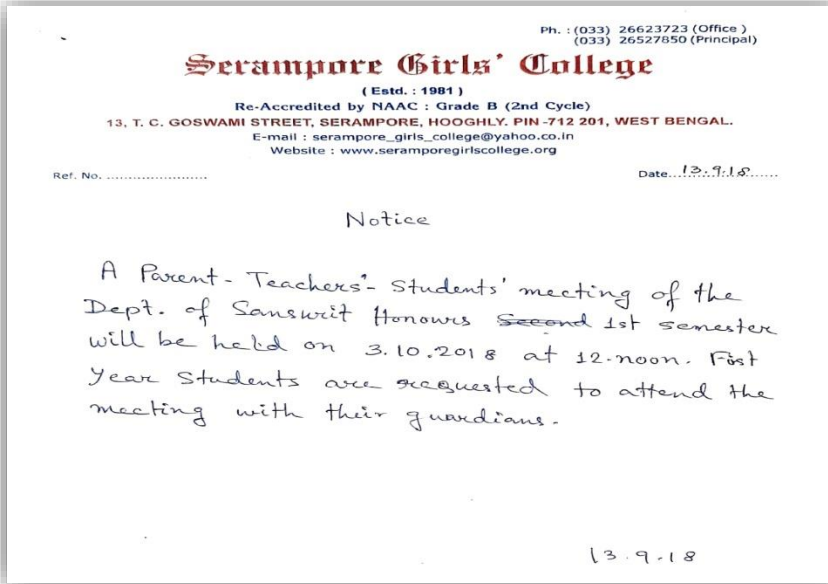 Ph. : (033) 26623723 (Office )
(033) 26527850 (Principal)
Serampore Girls' College
( Estd. : 1981 )
Re-Accredited by NAAC : Grade B (2nd Cycle)
13, T. C. GOSWAMI STREET, SERAMPORE, HOOGHLY. PIN -712 201, WEST BENGAL.
E-mail : serampore_girls_college@yahoo.co.in
Website : www.seramporegirlscollege.org
Ref. No. ........................ Date...13.9.18......
Notice
A Parent- Teachers'- Students' meeting of the
Dept. of Sanskrit Honours Second 1st semester
will be held on 3.10.2018 at 12-noon. First
Year Students are requested to attend the
meeting with their guardians.
13.9.18